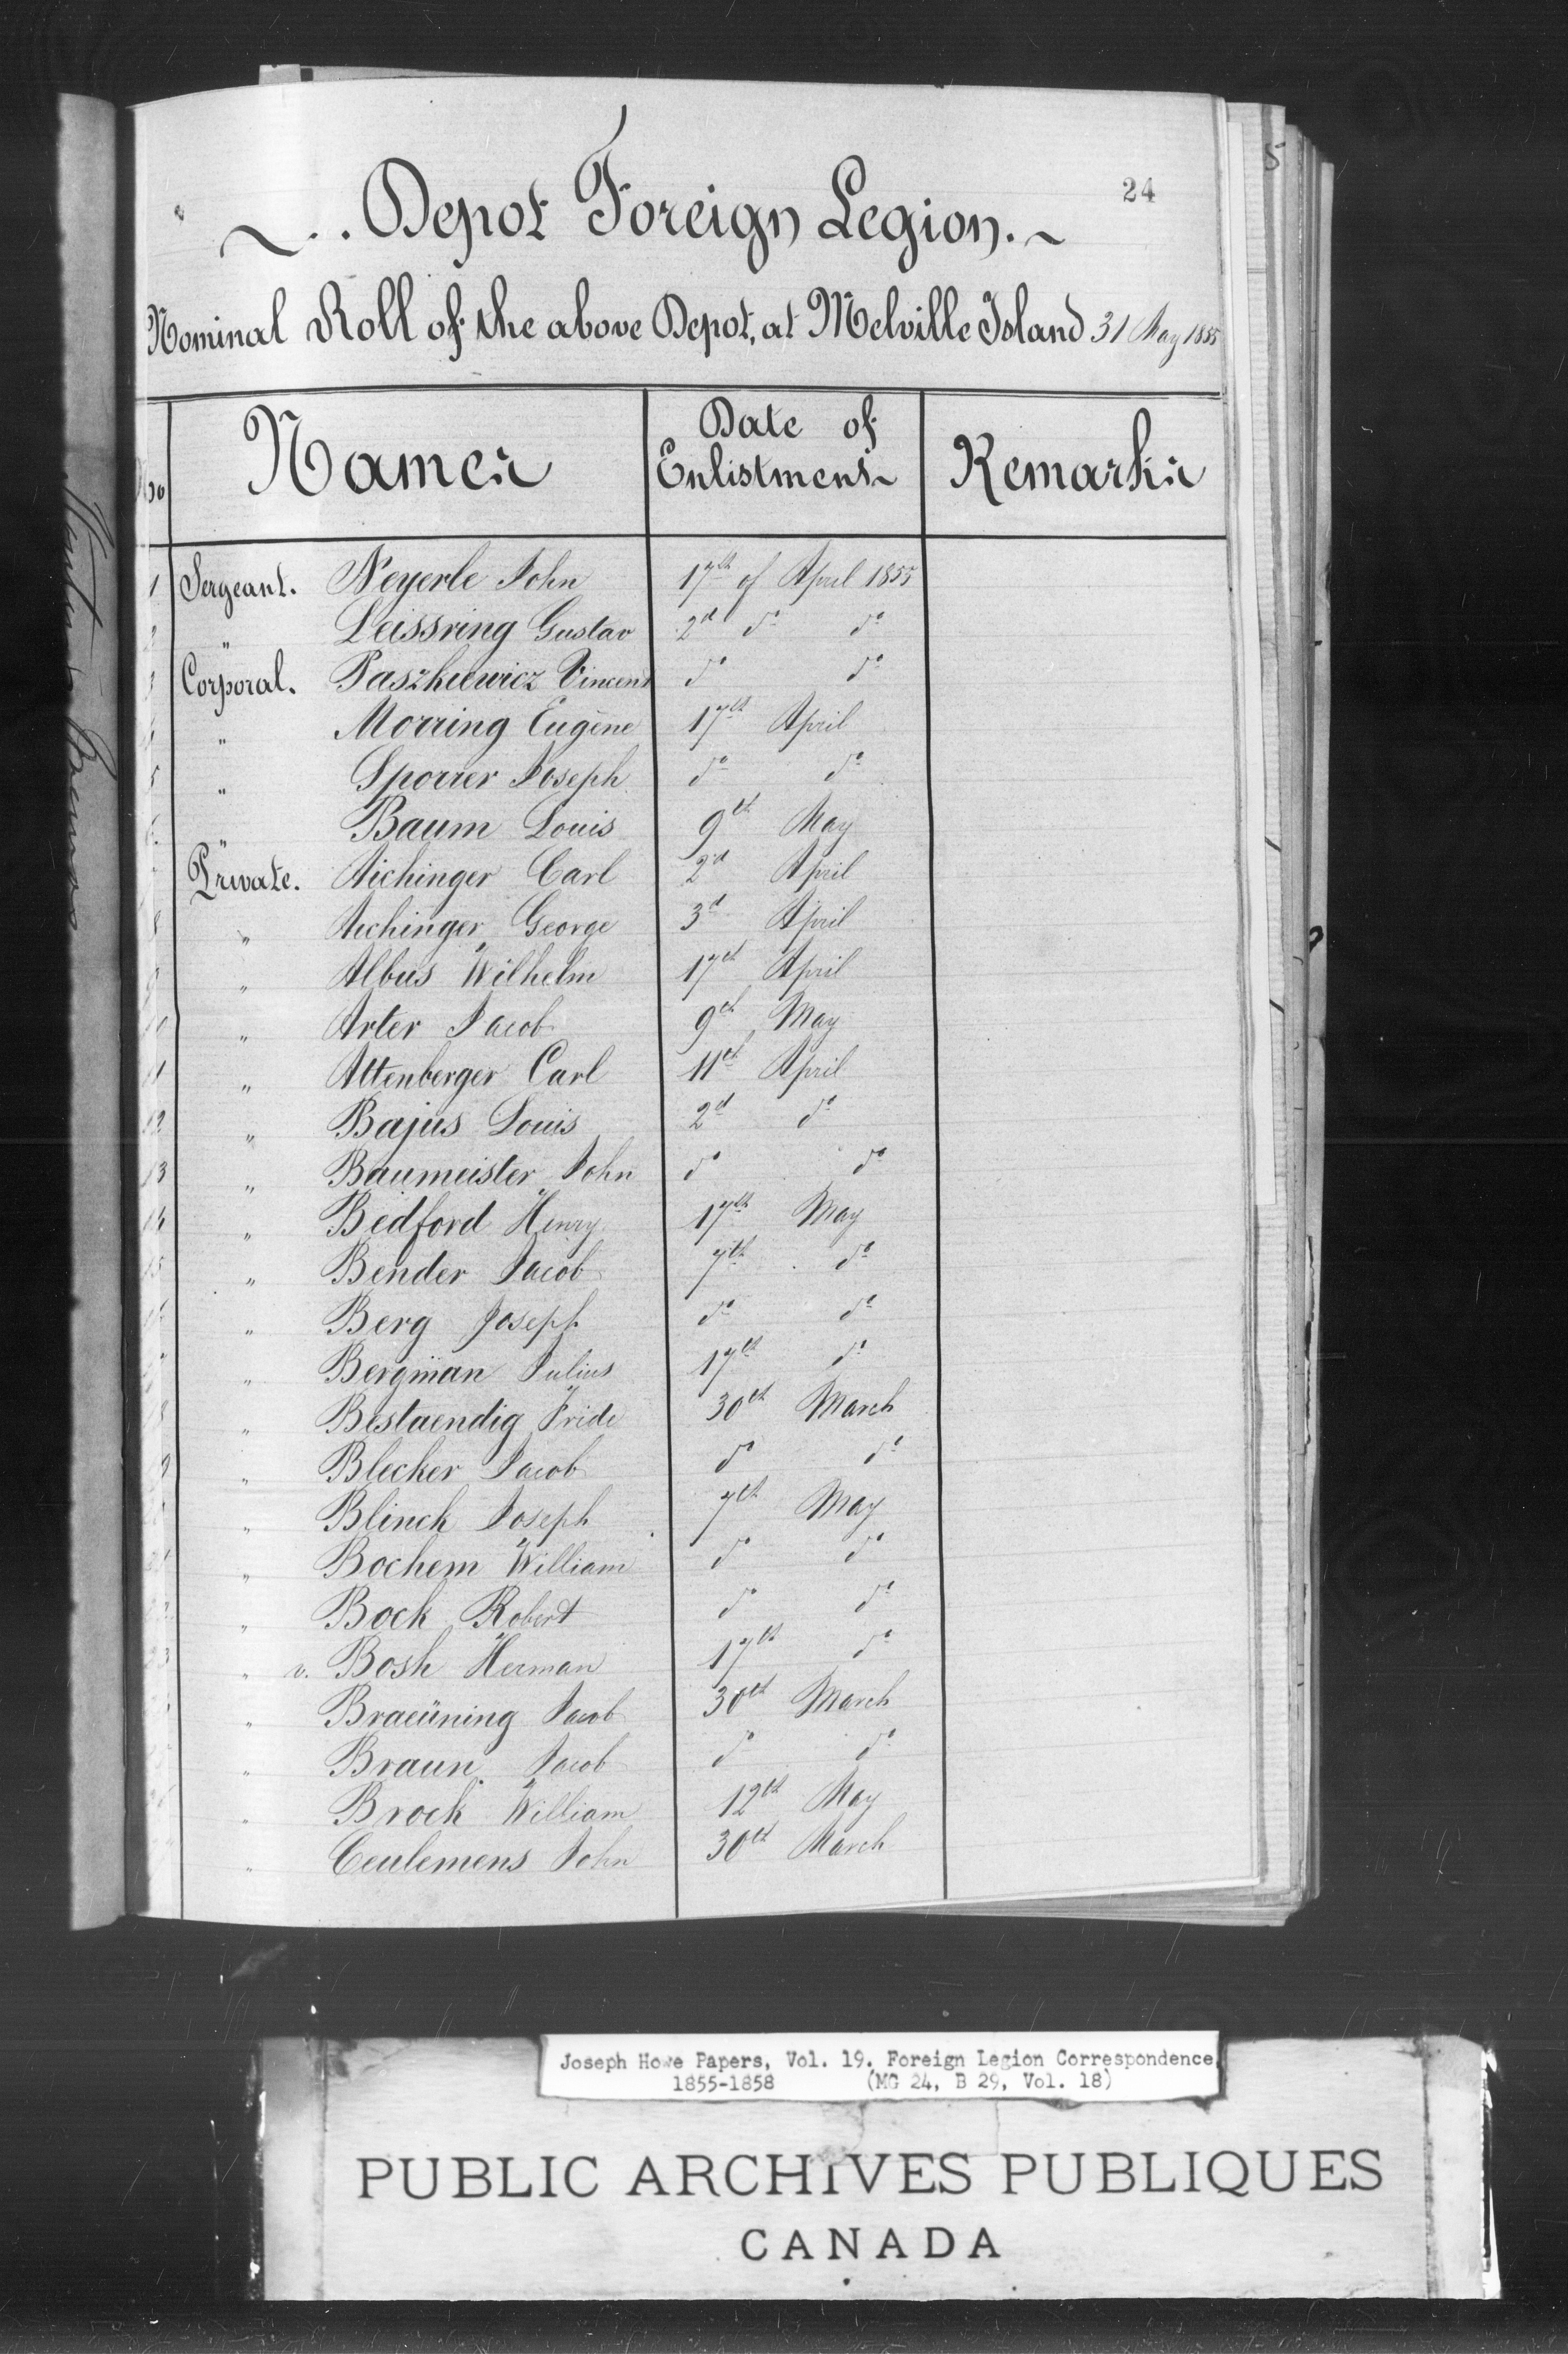 24
5
Depot Foreign Legion.
Nominal Roll of the above Depot, at Melville Island 31 May 1855
No Names Date of Enlistment Remarks
1 Sergeant. Neyerle John 17th of April 1855
2 " Leissring Gustav 2d do do
3 Corporal. Paszkiewicz Vincent do do
4 " Morring Eugène 17th April
5 " Sporrer Joseph do do
6 " Baum Louis 9th May
7 Private. Aichinger Carl 2d April
8 " Aichinger George 3d April
9 " Albus Wilhelm 17th April
10 " Arter Jacob 9th May
11 " Attenberger Carl 11th April
12 " Bajus Louis 2d do
13 " Baumeister John do do
14 " Bedford Henry 17th May
15 " Bender Jacob 7th do
16 " Berg Joseph do do
17 " Bergman Julius 17th do
18 " Bestaendig Fride 30th March
19 " Blecker Jacob do do
" Blinck Joseph 7th May
21 " Bochem William do do
22 " Bock Robert do do
23 " v. Bosh Herman 17th do
" Braeüning Jacob 30th March
25 " Braun Jacob do do
26 " Brock William 12th May
" Ceulemens John 30th March
Joseph Howe Papers, Vol. 19. Foreign Legion Correspondence,
1855-1858 (MG 24, B 29, Vol. 18)
PUBLIC ARCHIVES PUBLIQUES
CANADA